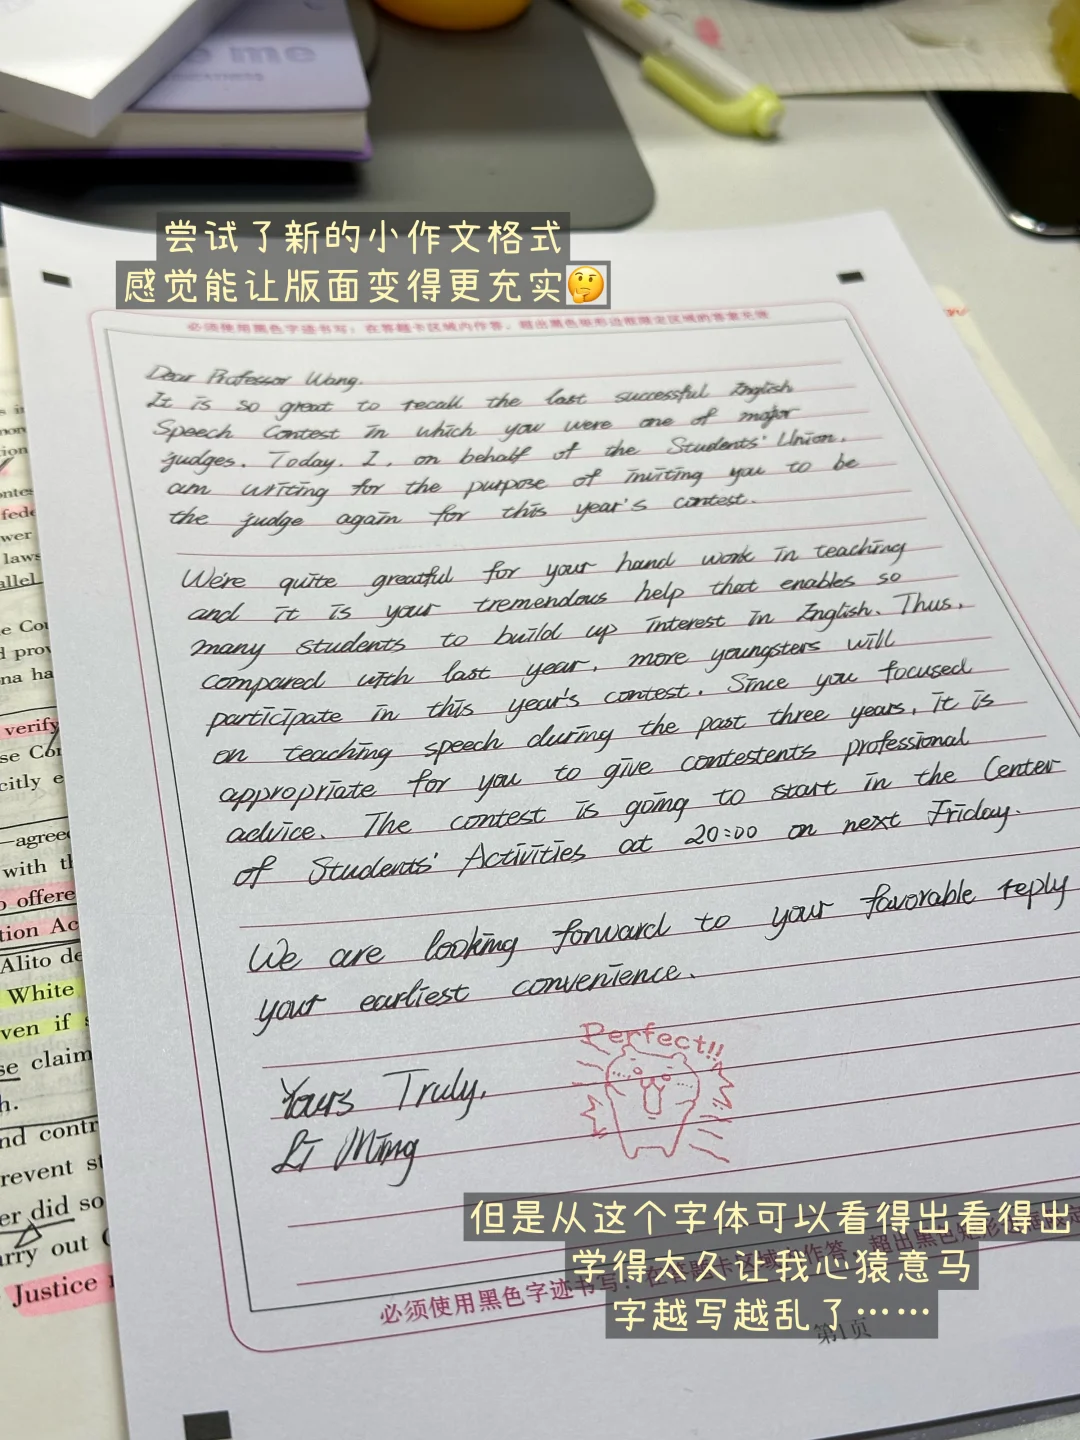 尝试了新的小作文格式
感觉能让版面变得更充实🤔
必须使用黑色字迹书写；在答题卡区域内作答，超出黑色矩形边框限定区域的答案无效
Dear Professor Wang,
It is so great to recall the last successful English
Speech Contest in which you were one of major
judges. Today, I, on behalf of the Students' Union,
am writing for the purpose of inviting you to be
the judge again for this year's contest.
We're quite greatful for your hand work in teaching
and it is your tremendous help that enables so
many students to build up interest in English. Thus,
compared with last year, more youngsters will
participate in this year's contest. Since you focused
on teaching speech during the past three years, it is
appropriate for you to give contestents professional
advice. The contest is going to start in the Center
of Students' Activities at 20:00 on next Friday.
We are looking forward to your favorable reply
your earliest convenience.
Perfect!!
Yours Truly,
Li Ming
但是从这个字体可以看得出看得出
学得太久让我心猿意马
字越写越乱了……
必须使用黑色字迹书写；在答题卡区域内作答，超出黑色矩形边框限定
第1页
verify
—agreed
with th
o offere
tion Ac
Alito de
White
ven if s
se claim
h.
nd contr
revent st
er did so
arry out
Justice